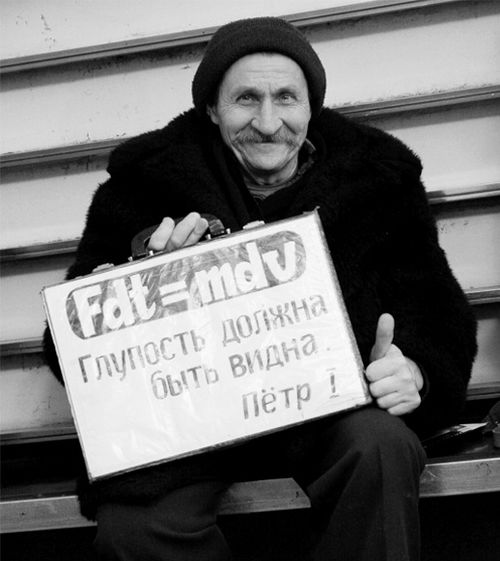 Fdt=mdv
Глупость должна
быть видна.
Пётр I